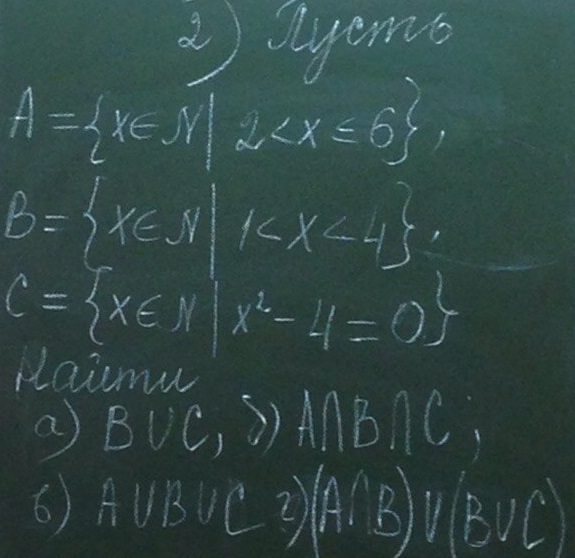 2) Пусть
A = {x ∈ N | 2 < x ≤ 6},
B = {x ∈ N | 1 < x < 4},
C = {x ∈ N | x² - 4 = 0}
Найти
а) B ∪ C, б) A ∩ B ∩ C;
в) A ∪ B ∪ C г) (A ∩ B) ∪ (B ∪ C)